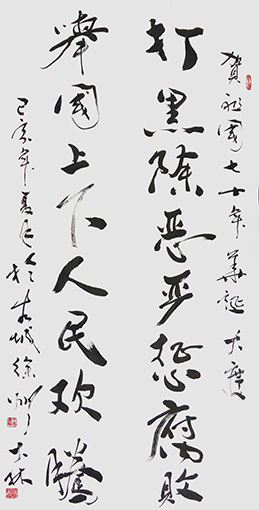 贺祖国七十年华诞大庆
打黑除恶严惩腐败
举国上下人民欢腾
己亥年夏月于古城徐州大林